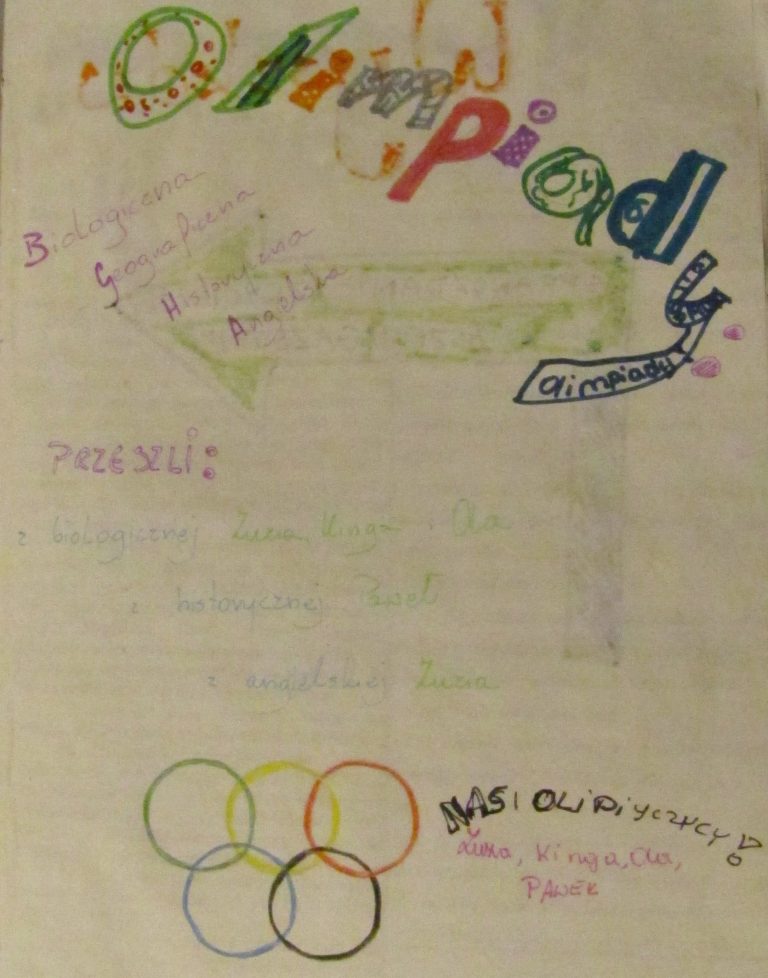 Olimpiady
olimpiady
Biologiczna
Geograficzna
Historyczna
Angelska
PRZESZLi:
z biologicznej Zuzia, Kinga i Ola
z historycznej Paweł
z angielskiej Zuzia
NASI
Zuzia, Kinga, Ola,
PAWEŁ